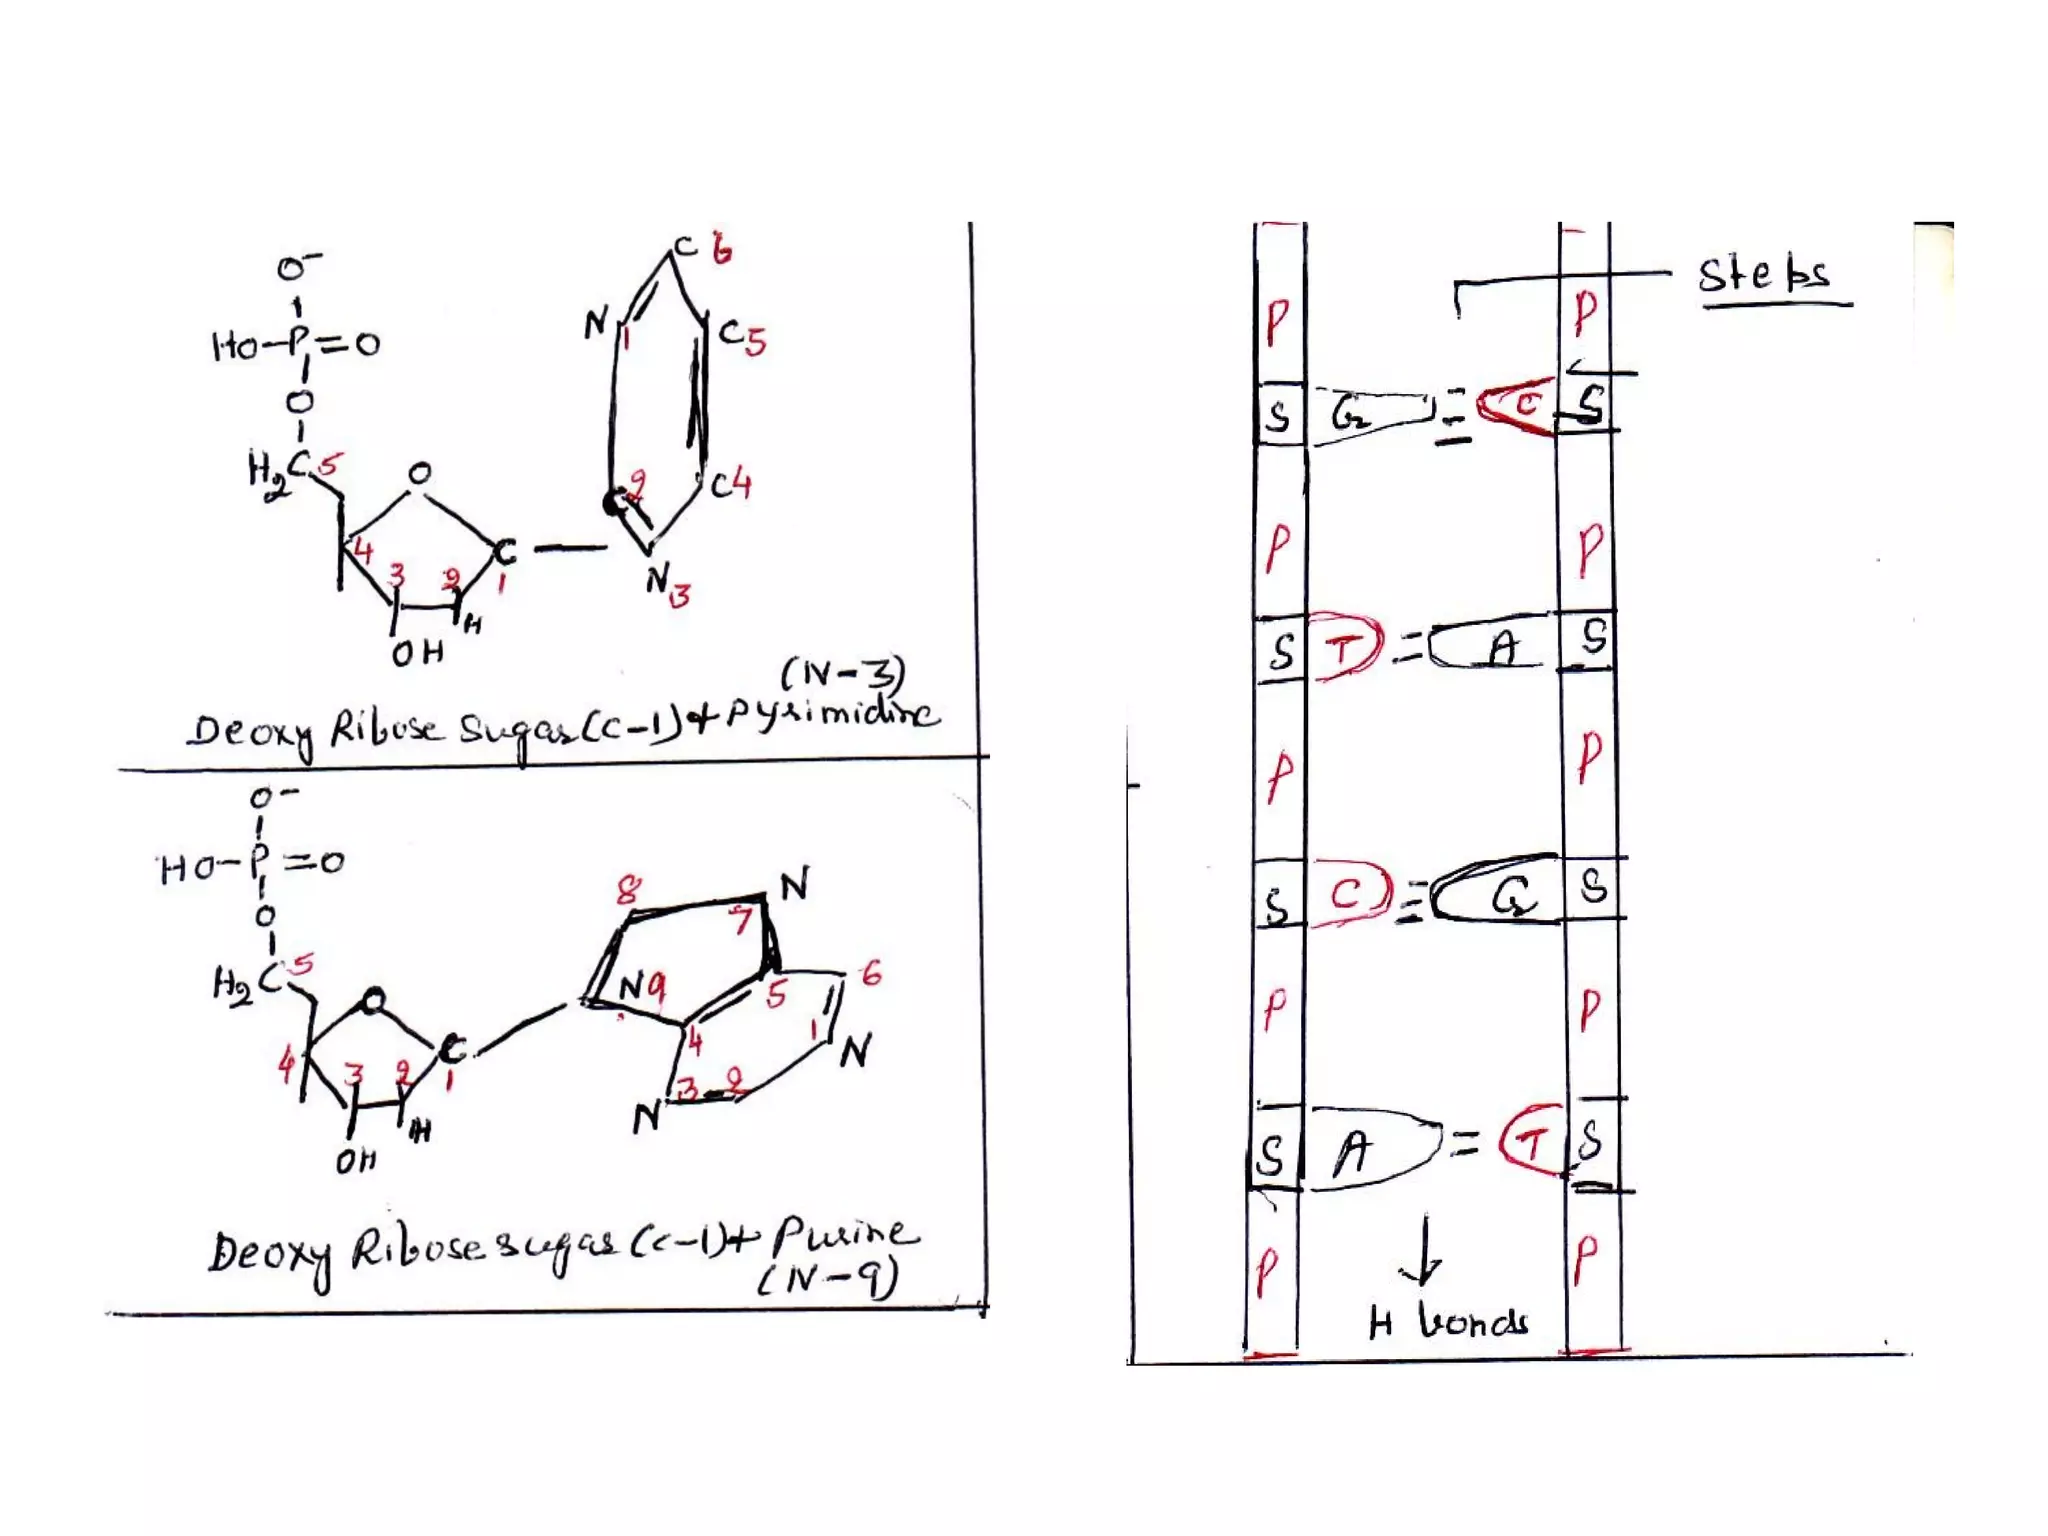 O-
HO-P=O
O
H2C5
O
4
3
2
C
1
H
OH
C 6
N
1
C5
C4
C2
N3
(N-3)
Deoxy Ribose Sugar(C-1)+Pyrimidine
O-
HO-P=O
O
H2C5
O
4
3
2
C
1
H
OH
8
N
7
N9
5
6
4
1
N
3
2
N
Deoxy Ribose sugar (C-1)+ Purine
(N-9)
Steps
P P
S G ≡ C S
P P
S T = A S
P P
S C ≡ G S
P P
S A = T S
P P
H bonds